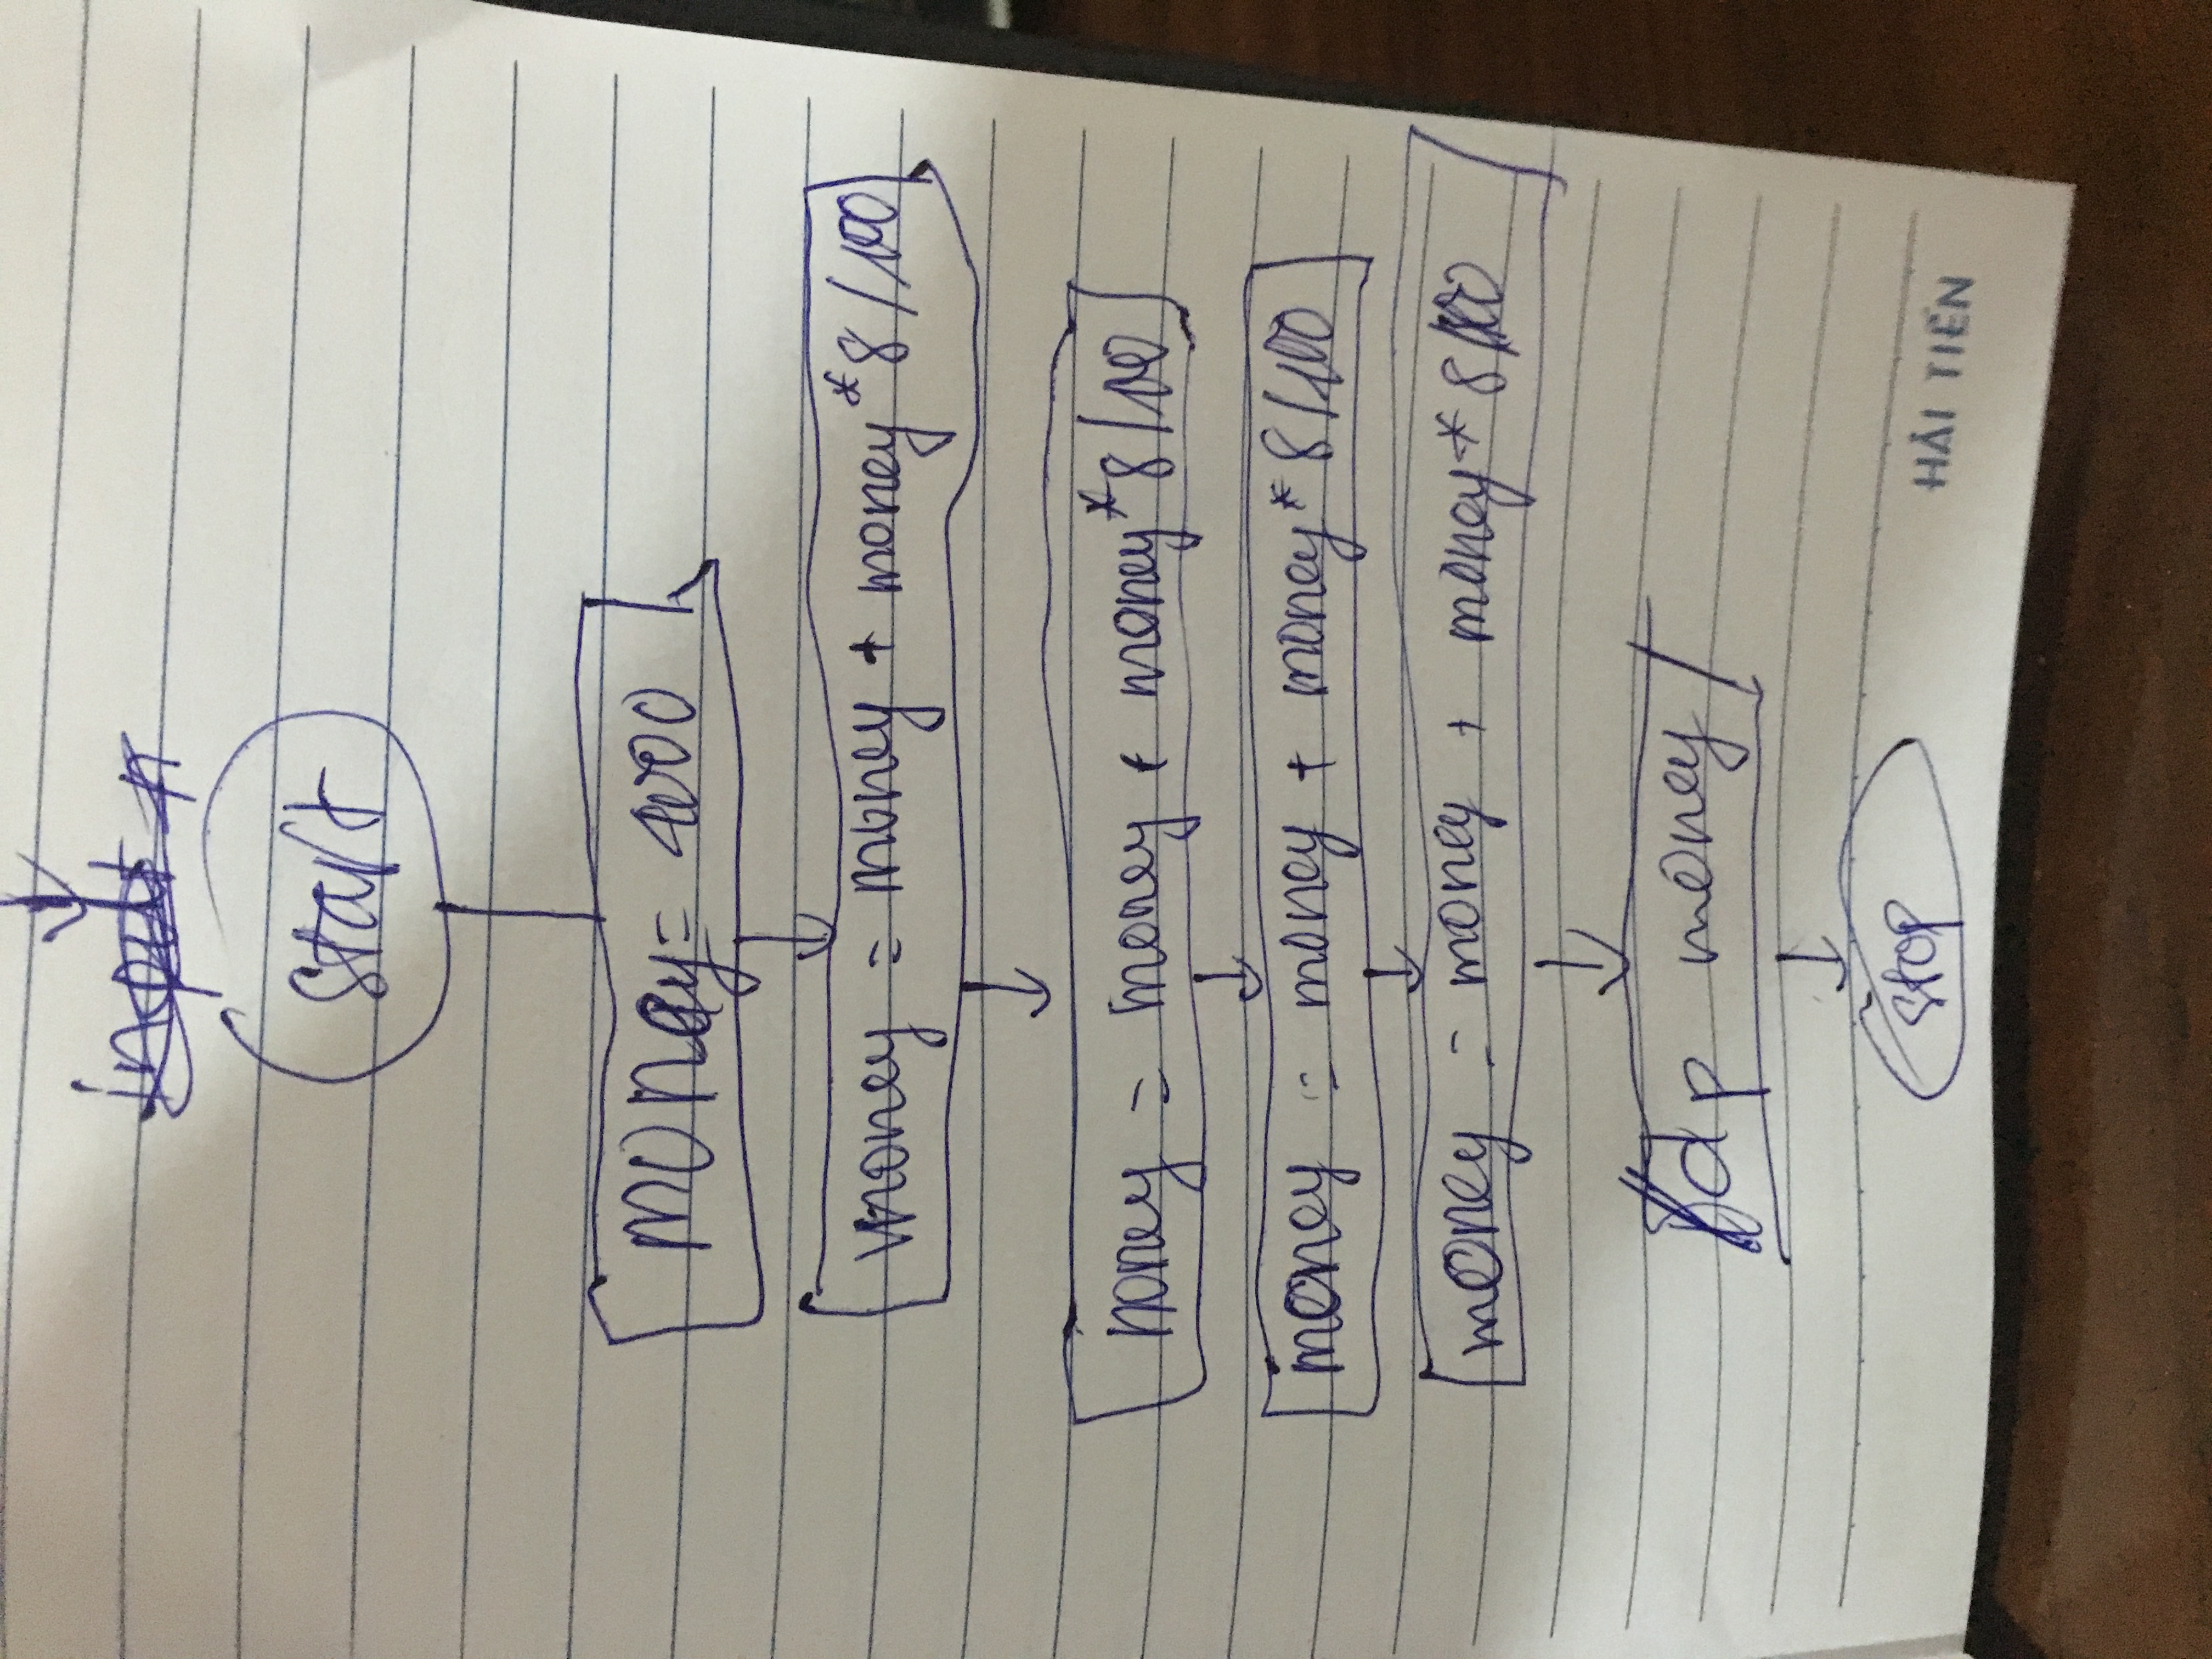 input n
start
money = 4000
money = money + money * 8 / 100
money = money + money * 8 / 100
money = money + money * 8 / 100
money = money + money * 8 / 100
dp money
stop
HẢI TIẾN